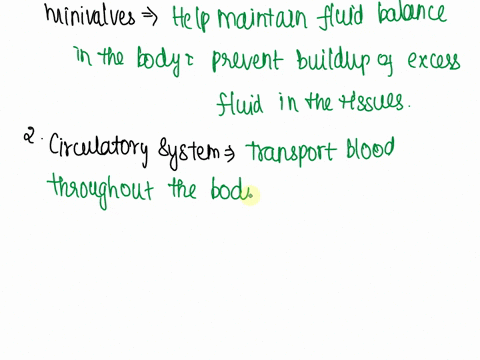 Minivalves ⇒ Help maintain fluid balance
in the body: prevent buildup of excess
fluid in the tissues.
2. Circulatory System ⇒ transport blood
throughout the bod